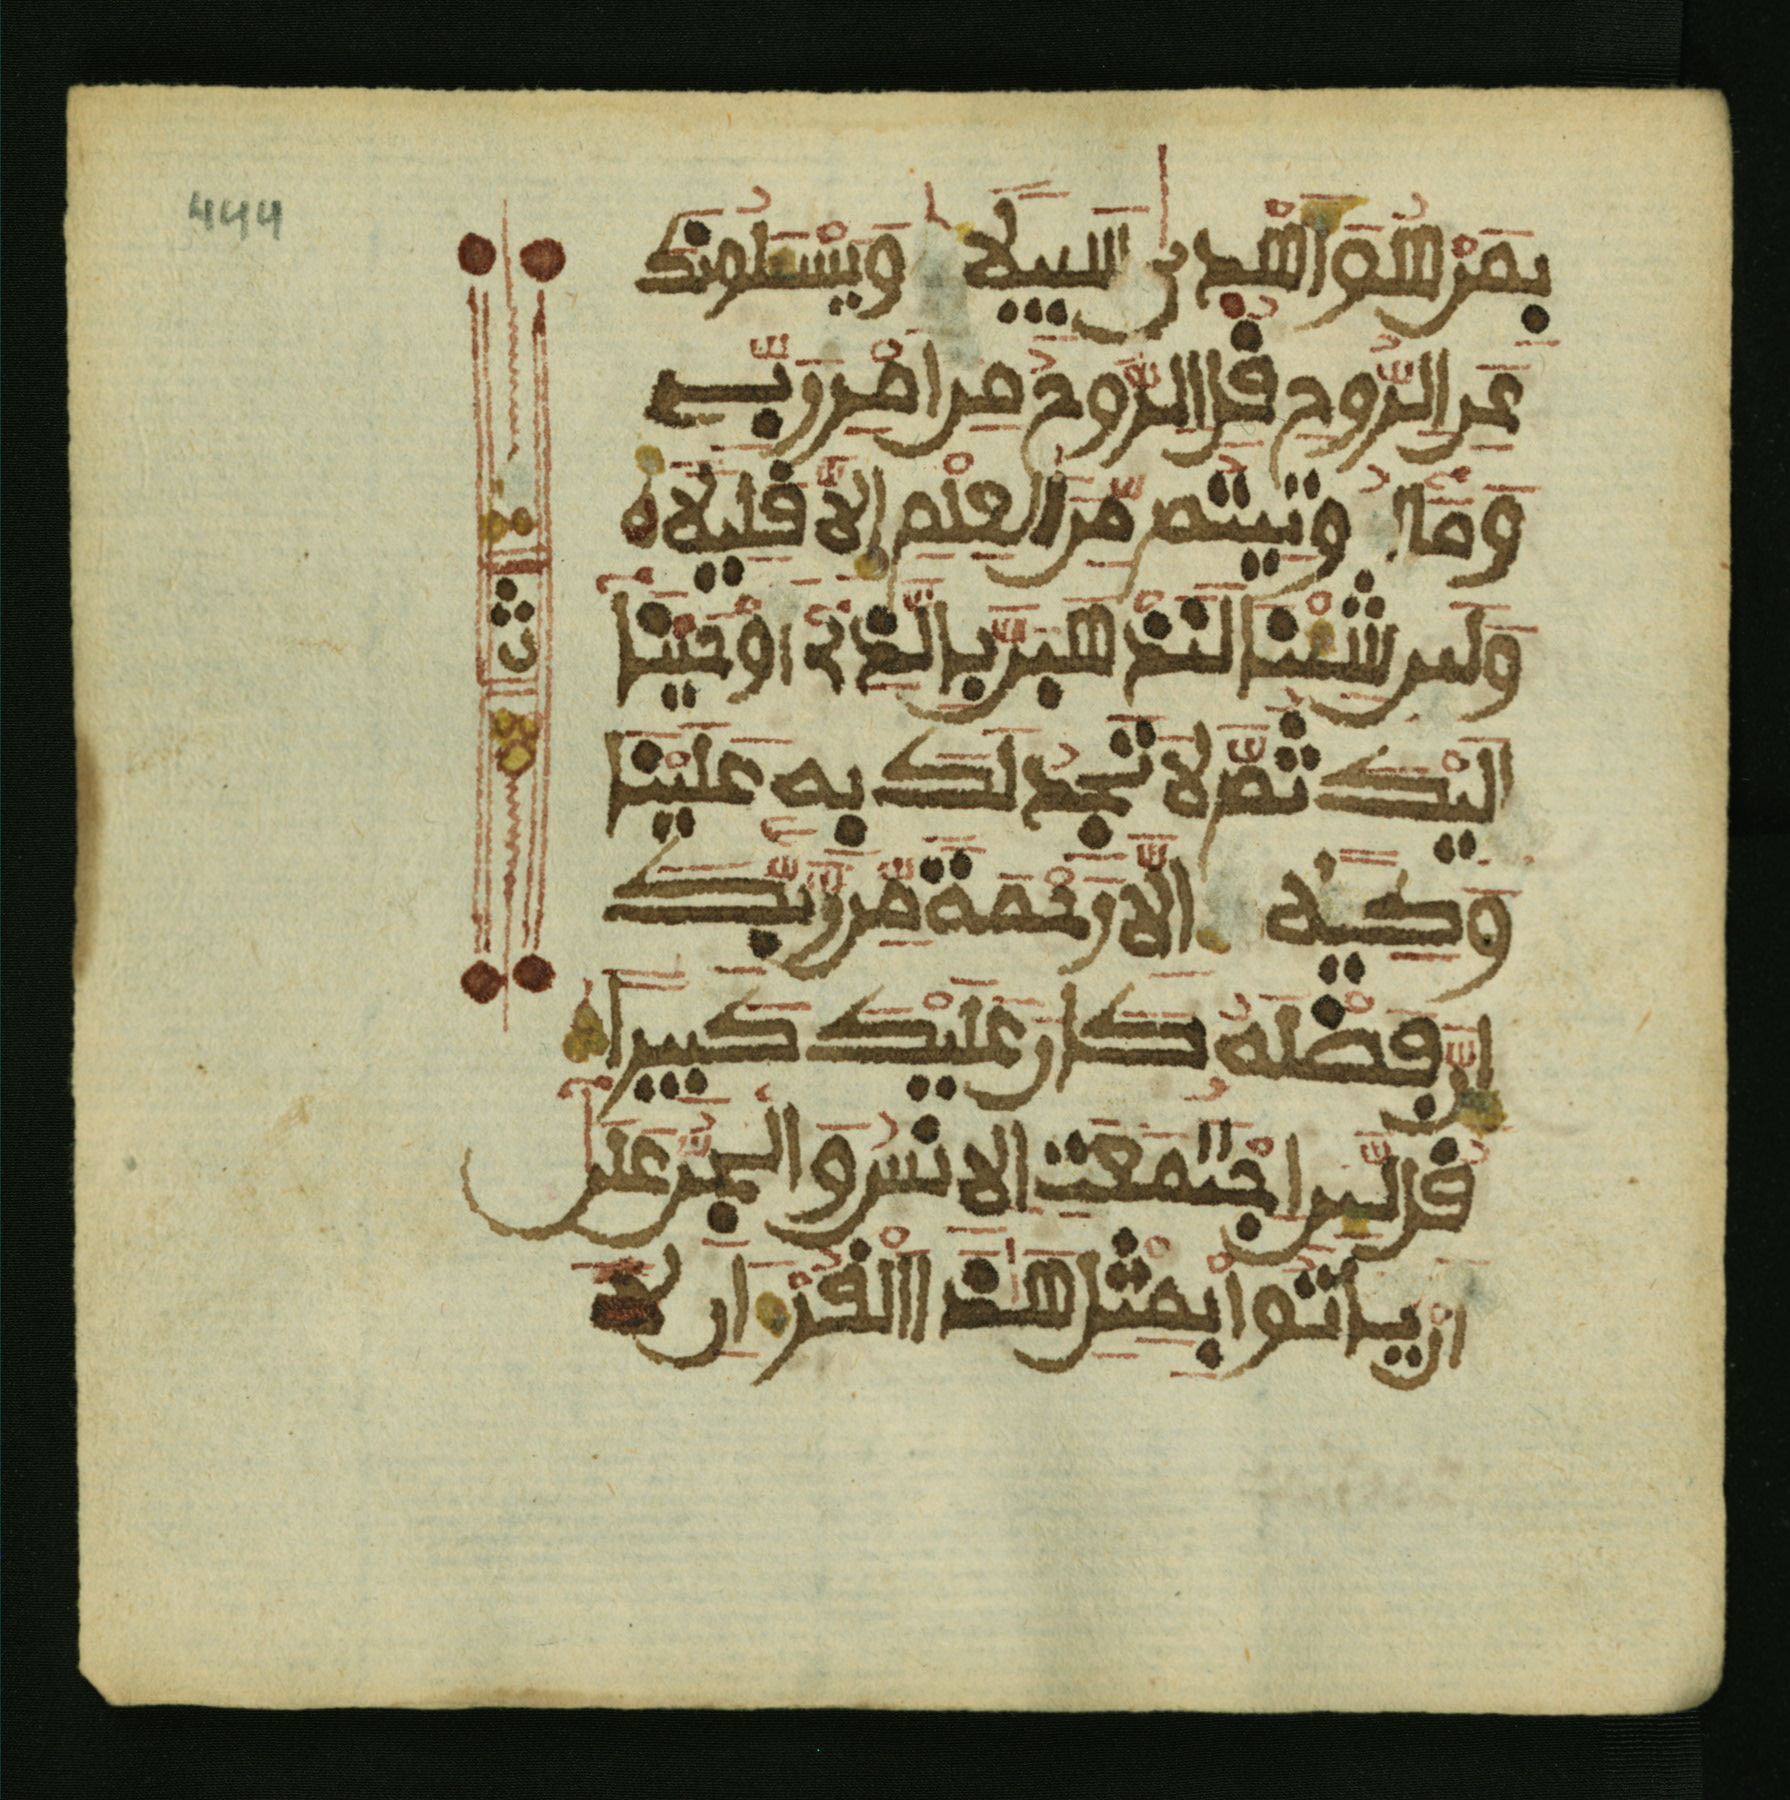 444
بمن هو اهدى سبيلا ويسئلونك
عن الروح قل الروح من امر ربي
وما اوتيتم من العلم الا قليلا
ولين شئنا لنذهبن بالذي اوحينا
اليك ثم لا تجد لك به علينا
وكيلا الا رحمة من ربك
ان فضله كان عليك كبيرا
قل لين اجتمعت الانس والجن على
ان ياتوا بمثل هذا القرءان لا